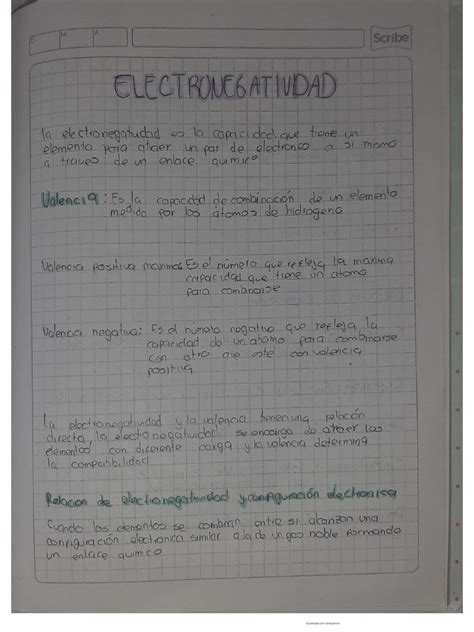 D M A
Scribe
ELECTRONEGATIVIDAD
la electronegatividad es la capacidad que tiene un
elemento para ataer un par de electrones a si mismo
a traves de un enlace quimico
Valencia: Es la capacidad de combinación de un elemento
medido por los átomos de hidrogeno
Valencia positiva maxima: Es el número que refleja la maxima
capacidad que tiene un atomo
para combinarse
Valencia negativa: Es el número negativo que refleja la
capacidad de un atomo para combinarse
con otro que este con valencia
positiva
la electronegatividad y la valencia tienen una relacón
directa, la electronegatividad se encarga de atraer las
elementos con diferente carga y la valencia determina
la compatibilidad
Relacion de electronegatividad y configuración electronica
Cuando los elementos se combinan entre si alcanzan una
configuración electronica similar a la de un gas noble formando
un enlace quimico